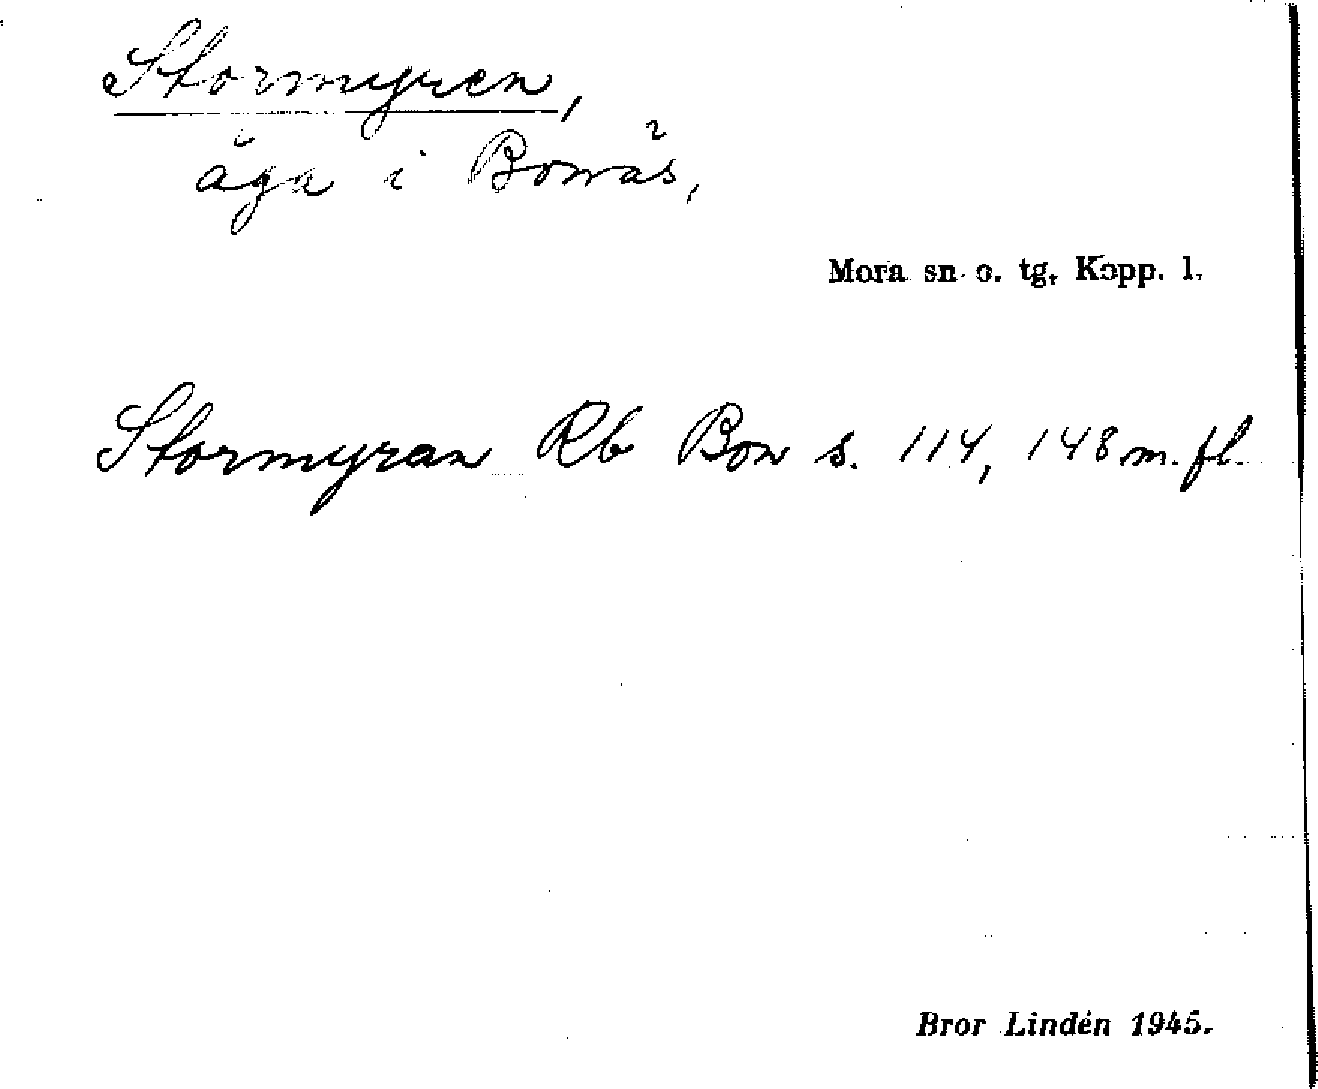 Stormyren,
äga i Bonäs,
Mora sn o. tg. Kopp. l.
Stormyran Rb Bon s. 114, 148 m. fl.
Bror Lindén 1945.